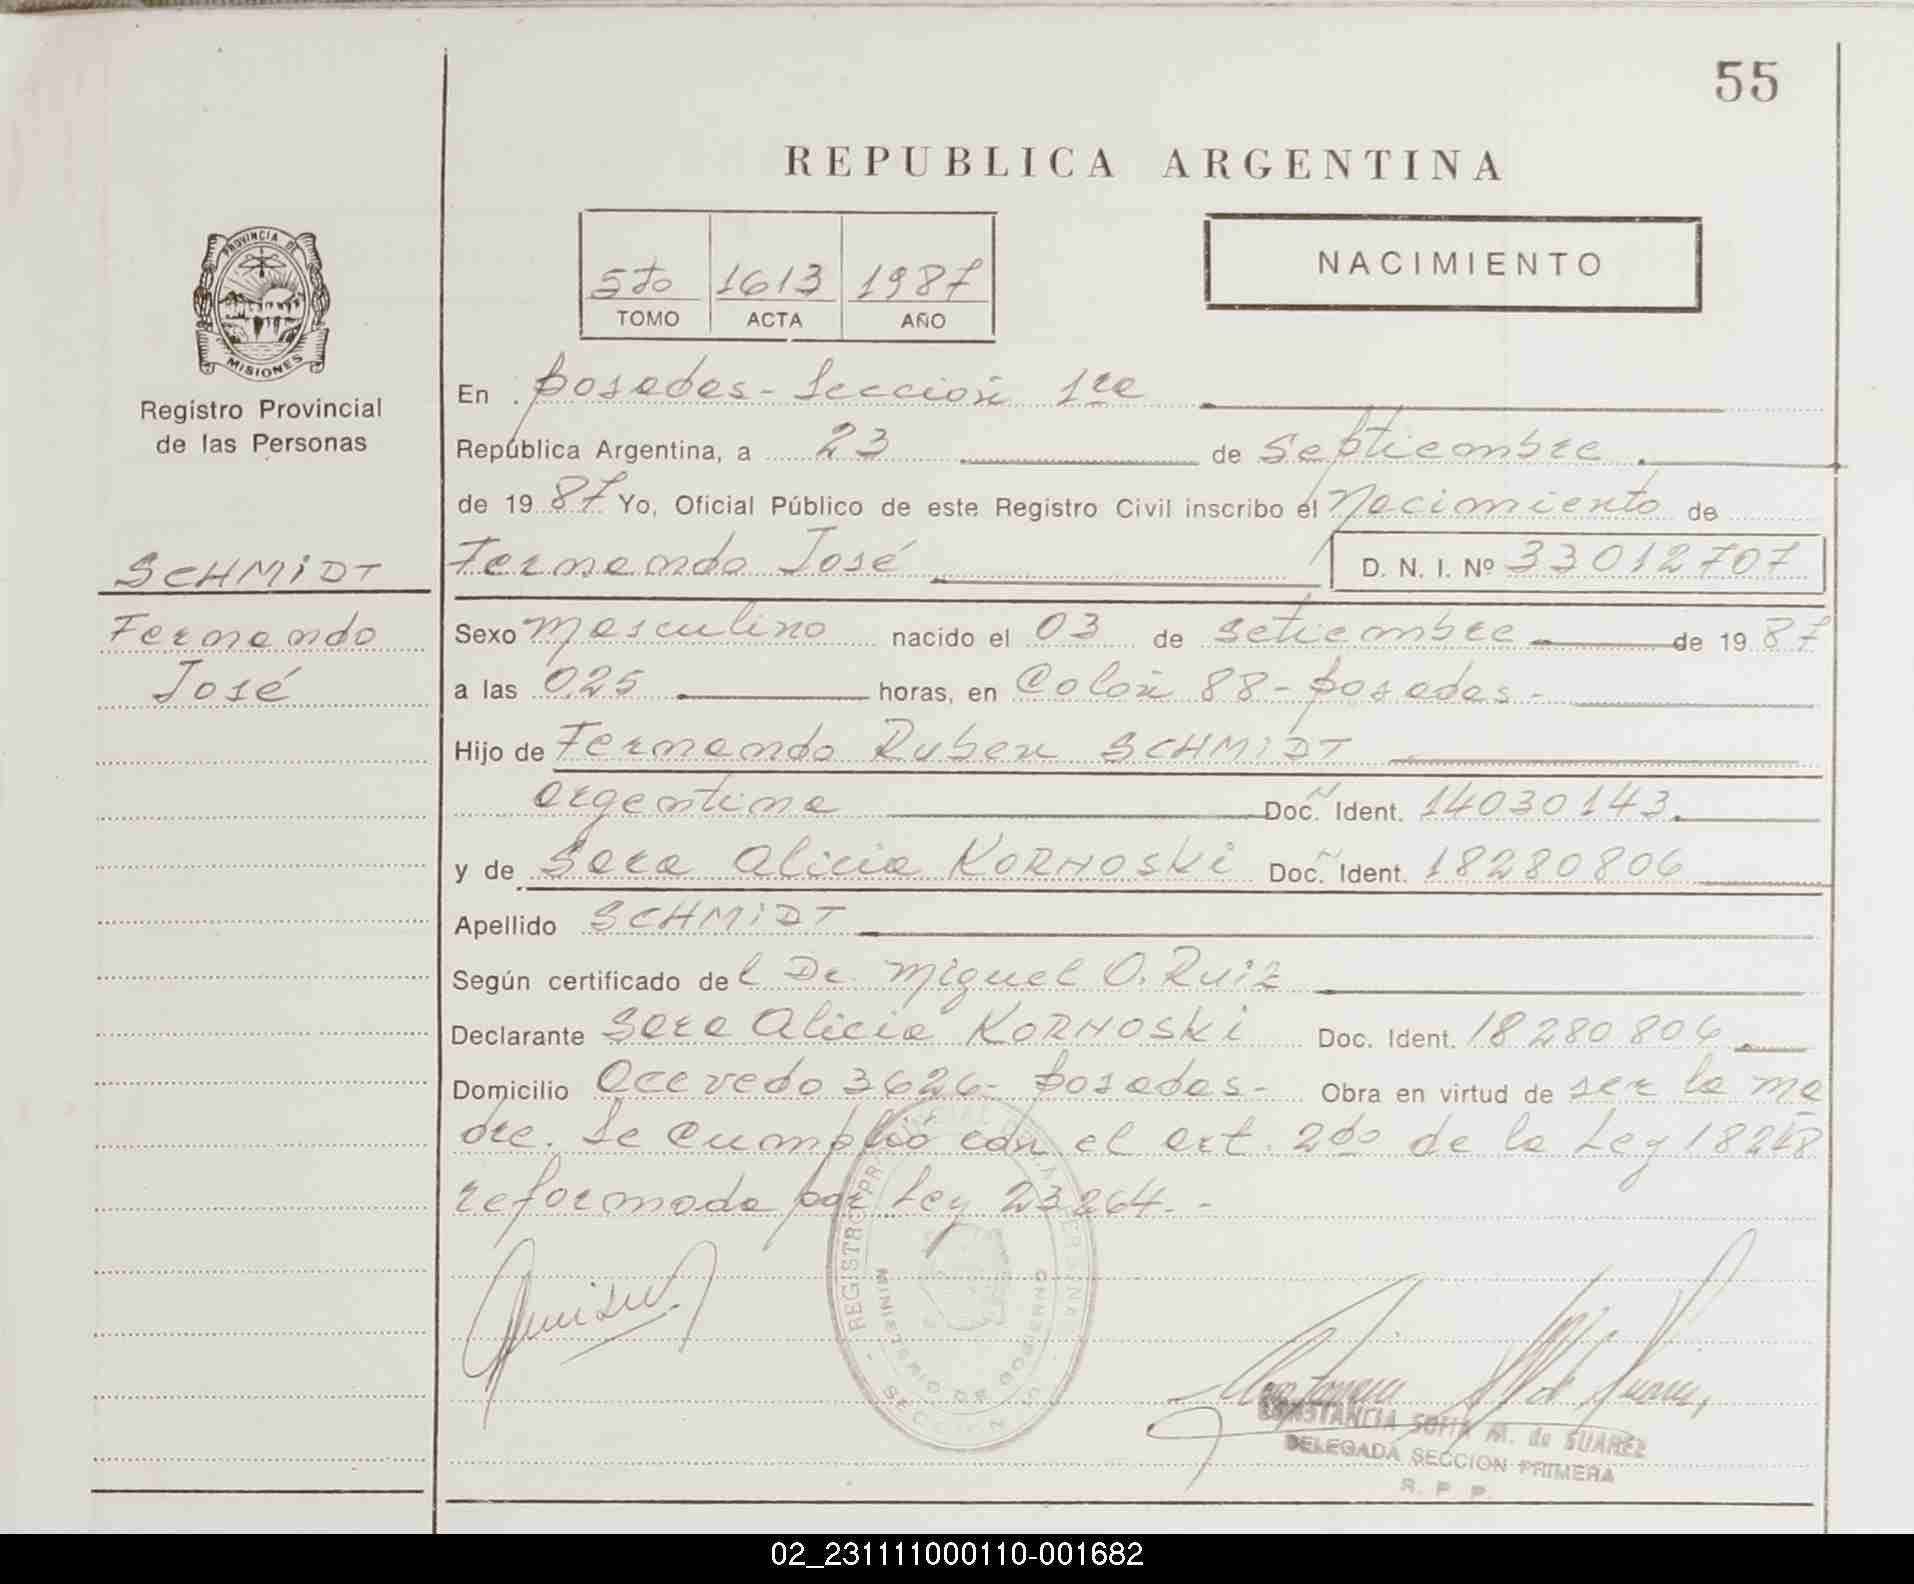 55
REPUBLICA ARGENTINA
5to 1613 1987
TOMO ACTA AÑO
NACIMIENTO
PROVINCIA DE
MISIONES
Registro Provincial
de las Personas
SCHMIDT
Fernando
José
En Posadas - Sección 1ra
República Argentina, a 23 de Septiembre
de 1987 Yo, Oficial Público de este Registro Civil inscribo el Nacimiento de
Fernando José D. N. I. Nº 33012707
Sexo masculino nacido el 03 de setiembre de 1987
a las 0,25 horas, en Colón 88 - Posadas -
Hijo de Fernando Ruben SCHMIDT
argentina Doc. Ident. 14030143
y de Sara Alicia KORNOSKI Doc. Ident. 18280806
Apellido SCHMIDT
Según certificado del Dr. Miguel O. Ruiz
Declarante Sara Alicia KORNOSKI Doc. Ident. 18280806
Domicilio Acevedo 3626 - Posadas - Obra en virtud de ser la ma
dre. Se cumplió con el art. 2do de la Ley 18248
reformada por Ley 23264. -
REGISTRO PROVINCIAL DE LAS PERSONAS
MINISTERIO DE GOBIERNO
SECCION
CONSTANCIA SOFIA M. de SUAREZ
DELEGADA SECCION PRIMERA
R. P. P.
02_231111000110-001682